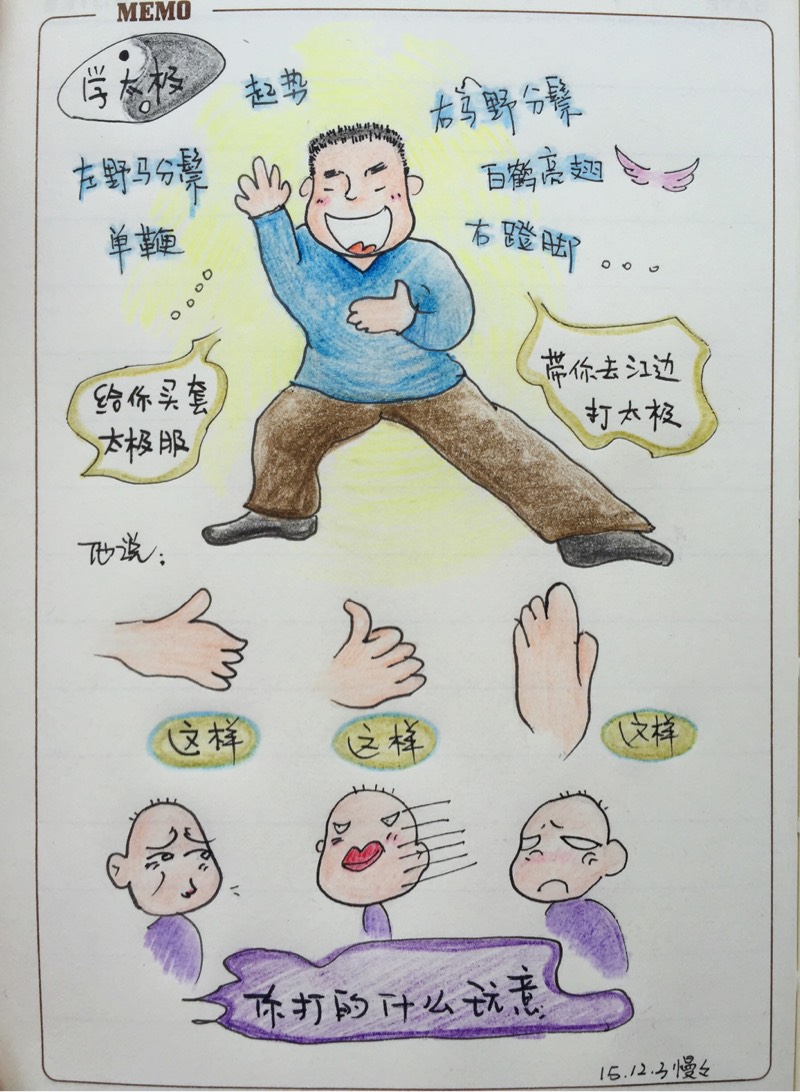 MEMO
学太极
起势
右马野分鬃
左野马分鬃
百鹤亮翅
单鞭
右蹬脚
给你买套
太极服
带你去江边
打太极
他说：
这样
这样
这样
你打的什么玩意
15.12.3慢々